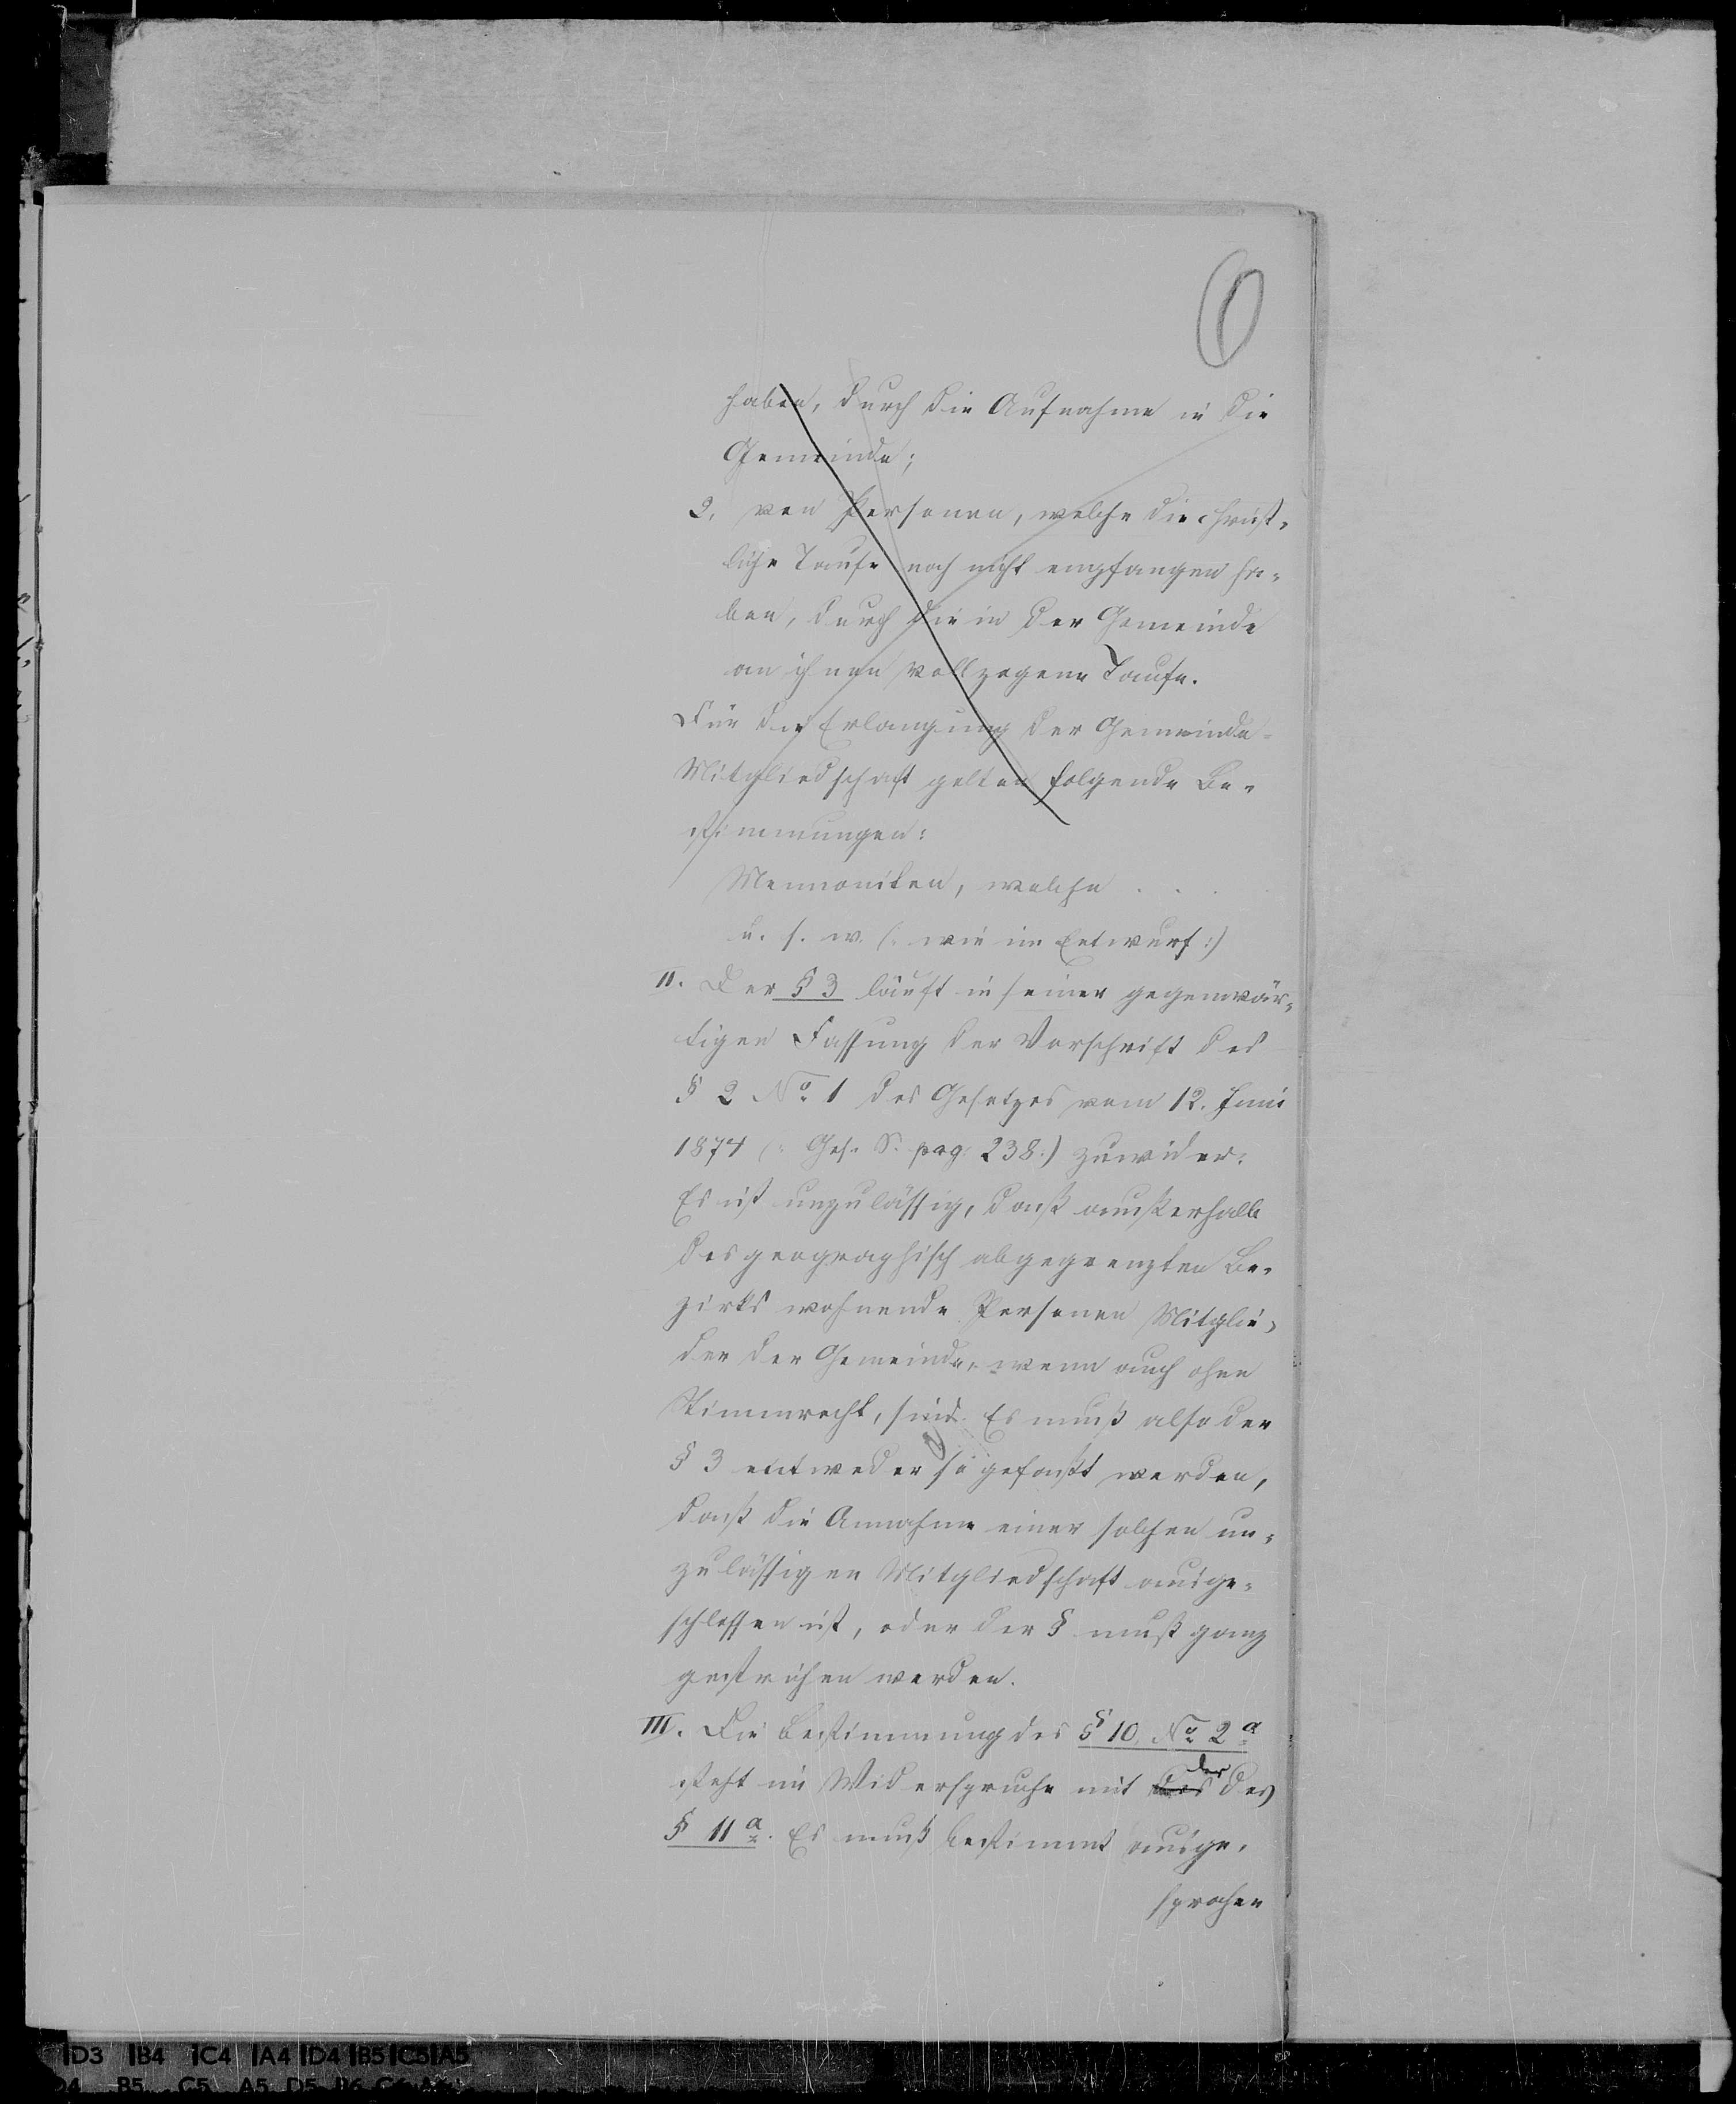 haben, durch die Aufnahme in die
Gemeinde;
2, von Personen, welche die christ-
liche Taufe noch nicht empfangen ha-
ben, durch die in der Gemeinde
an ihnen vollzogene Taufe.
Für die Erlangung der Gemeinde-
Mitgliedschaft gelten folgende Be-
stimmungen:
Mennoniten, welche . . .
u. s. w. (: wie im Entwurf :)
II. Der § 3 läuft in seiner gegenwär-
tigen Fassung der Vorschrift des
§ 2 No 1 des Gesetzes vom 12. Juni
1874 (: Ges. S. pag. 238 :) zuwider.
Es ist unzulässig, daß außerhalb
des geographisch abgegrenzten Be-
zirks wohnende Personen Mitglie-
der der Gemeinde, wenn auch ohne
Stimmrecht, sind. Es muß also der
§ 3 entweder so gefaßt werden,
daß die Annahme einer solchen un-
zulässigen Mitgliedschaft ausge-
schlossen ist, oder der § muß ganz
gestrichen werden.
III. Die Bestimmung des § 10 No 2 a
steht im Widerspruche mit der des
§ 11 a. Es muß bestimmt ausge-
sprochen
D3 B4 C4 A4 D4 B5 C5 A5
D4 B5 C5 A5 D5 B6 C6 A6